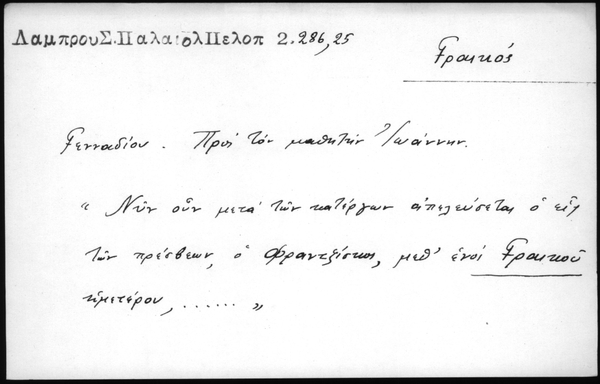 ΛαμπρουΣ.ΠαλαιολΠελοπ 2.286,25
Γραικός
Γενναδίου. Πρὸς τὸν μαθητὴν Ἰωάννην.
" Νῦν οὖν μετὰ τῶν κατέργων ἀπελεύσεται ὁ εἷς
τῶν πρέσβεων, ὁ Φραντζίσκος, μεθ' ἑνὸς Γραικοῦ
ἡμετέρου, ...... "